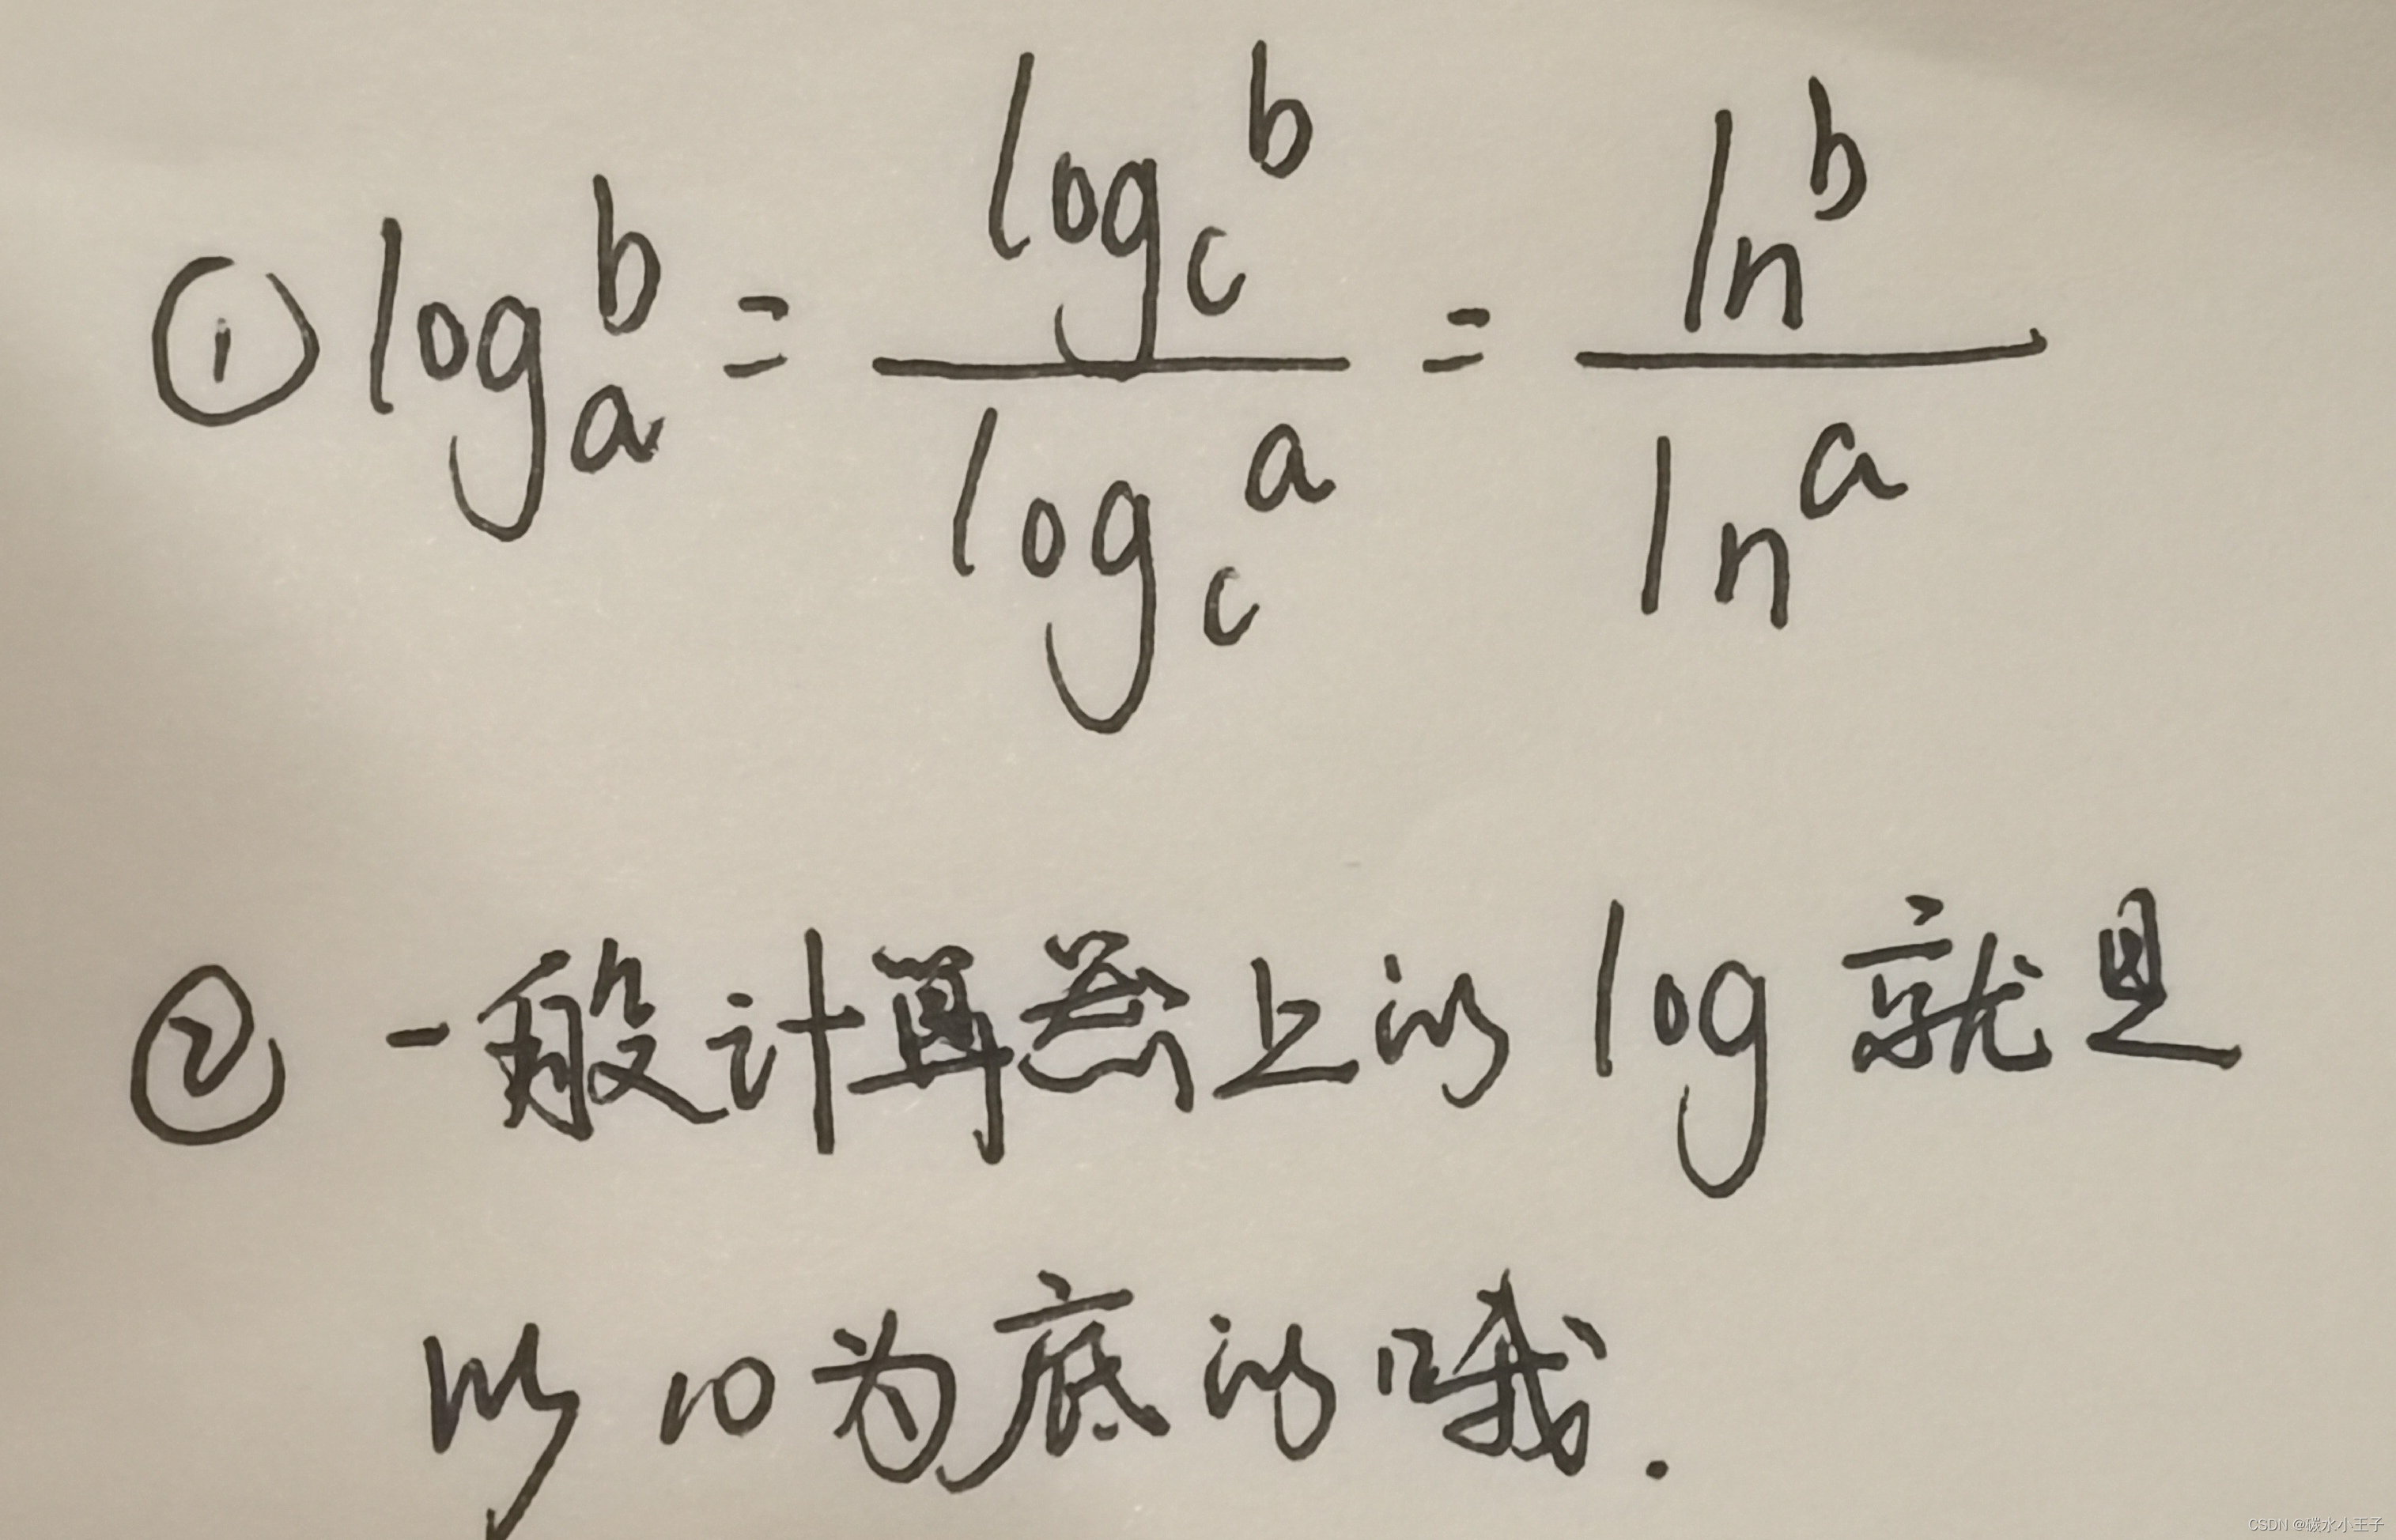 ① log_a^b = \frac{log_c^b}{log_c^a} = \frac{ln^b}{ln^a}
② 一般计算器上的 log 就是
以 10 为底的哦.
CSDN @碳水小王子